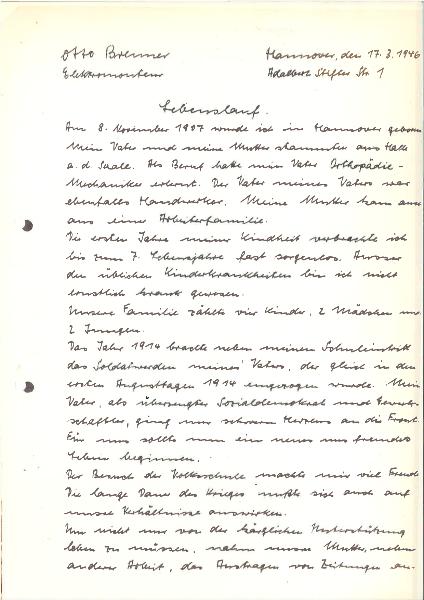 Otto Brenner
Hannover, den 17.3.1946
Elektromonteur
Adalbert Stifter Str. 1
Lebenslauf.
Am 8. November 1907 wurde ich in Hannover geboren
Mein Vater und meine Mutter stammten aus Halle
a.d. Saale. Als Beruf hatte mein Vater Orthopädie-
Mechaniker erlernt. Der Vater meines Vaters war
ebenfalls Handwerker. Meine Mutter kam auch
aus einer Arbeiterfamilie.
Die ersten Jahre meiner Kindheit verbrachte ich
bis zum 7. Lebensjahre fast sorgenlos. Ausser
den üblichen Kinderkrankheiten bin ich nicht
ernstlich krank gewesen.
Unsere Familie zählte vier Kinder, 2 Mädchen und
2 Jungen.
Das Jahr 1914 brachte neben meinem Schuleintritt
das Soldatwerden meines Vaters, der gleich in den
ersten Augusttagen 1914 eingezogen wurde. Mein
Vater, als überzeugter Sozialdemokrat und Gewerk-
schaftler, ging nur schweren Herzens an die Front.
Für uns sollte nun ein neues uns fremdes
Leben beginnen.
Der Besuch der Volksschule machte mir viel Freude
Die lange Dauer des Krieges mußte sich auch auf
unsere Verhältnisse auswirken.
Um nicht nur von der kärglichen Unterstützung
leben zu müssen, nahm unsere Mutter, neben
anderer Arbeit, das Austragen von Zeitungen an.